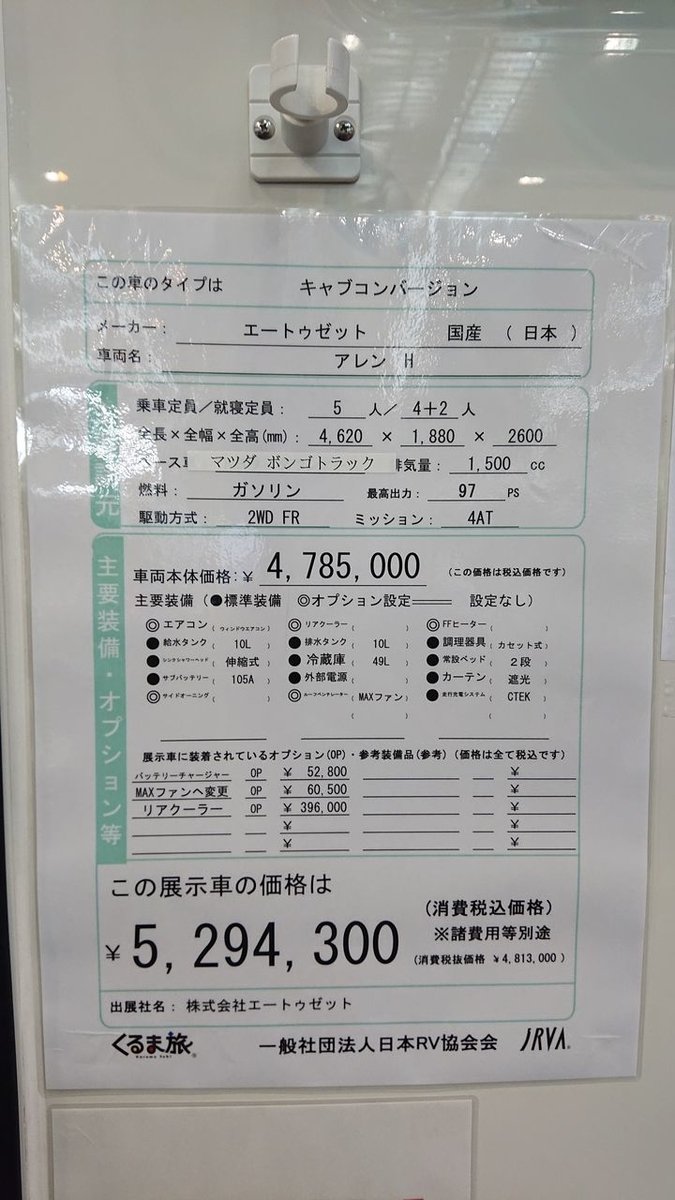 この車のタイプは キャブコンバージョン
メーカー： エートゥゼット 国産 （ 日本 ）
車両名： アレン H
元
乗車定員／就寝定員： 5 人／ 4+2 人
全長×全幅×全高(mm)： 4,620 × 1,880 × 2600
ベース車 マツダ ボンゴトラック 排気量： 1,500 cc
燃料： ガソリン 最高出力： 97 PS
駆動方式： 2WD FR ミッション： 4AT
主要装備・オプション等
車両本体価格：¥ 4,785,000 （この価格は税込価格です）
主要装備（●標準装備 ◎オプション設定══ 設定なし）
◎ エアコン（ウィンドウエアコン） ◎ リアクーラー（ ） ◎ FFヒーター（ ）
● 給水タンク（ 10L ） ● 排水タンク（ 10L ） ● 調理器具（ カセット式 ）
● シンクシャワーヘッド（ 伸縮式 ） ● 冷蔵庫（ 49L ） ● 常設ベッド（ 2段 ）
● サブバッテリー（ 105A ） ● 外部電源（ ） ● カーテン（ 遮光 ）
◎ サイドオーニング（ ） ◎ ルーフベンチレーター（ MAXファン ） ● 走行充電システム（ CTEK ）
展示車に装着されているオプション(OP)・参考装備品(参考)（価格は全て税込です）
バッテリーチャージャー OP ¥ 52,800 ¥
MAXファンへ変更 OP ¥ 60,500 ¥
リアクーラー OP ¥ 396,000 ¥
¥ ¥
¥ ¥
この展示車の価格は
¥5,294,300
（消費税込価格）
※諸費用等別途
（消費税抜価格 ¥4,813,000 ）
出展社名： 株式会社エートゥゼット
くるま旅® 一般社団法人日本RV協会会 JRVA®